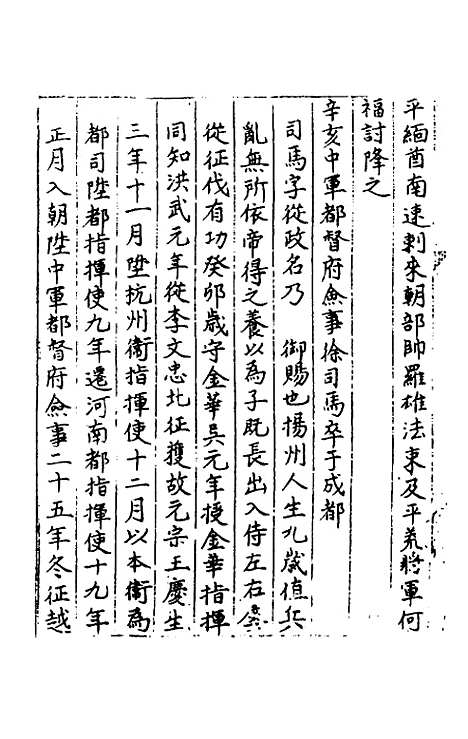 平緬酋南速剌來朝部帥羅雄法束及平羌將軍何
福討降之
辛亥中軍都督府僉事徐司馬卒于成都
司馬字從政名乃　御賜也揚州人生九歲值兵
亂無所依帝得之養以為子既長出入侍左右
從征伐有功癸卯歲守金華吳元年授金華指揮
同知洪武元年從李文忠北征獲故元宗王慶生
三年十一月陞杭州衛指揮使十二月以本衛為
都司陞都指揮使九年還河南都指揮使十九年
正月入朝陞中軍都督府僉事二十五年冬征越